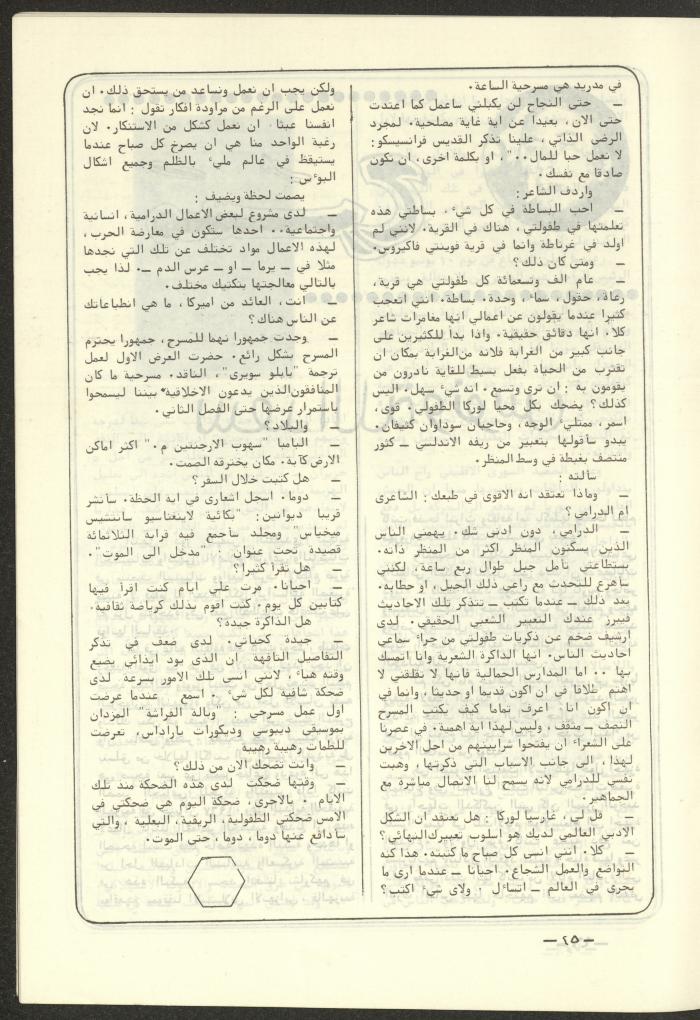 في مدريد هي مسرحية الساعة.
ــ حتى النجاح لن يكبلني سأعمل كما اعتدت
حتى الان ، بعيدا عن اية غاية مصلحية. لمجرد
الرضى الذاتي ، علينا تذكر القديس فرانسيسكو:
لا نعمل حبا للمال.." ، او بكلمة اخرى ، ان نكون
صادقا مع نفسك.
واردف الشاعر :
ــ احب البساطة في كل شيء . بساطتي هذه
تعلمتها في طفولتي ، هناك في القرية. لانني لم
اولد في غرناطة وانما في قرية فوينتي فاكيروس.
ــ ومتى كان ذلك؟
ــ عام الف وتسعمائة كل طفولتي هي قرية ،
رعاة ، حقول ، سماء ، وحدة. بساطة. انني اتعجب
كثيرا عندما يقولون عن اعمالي انها مغامرات شاعر
كلا. انها دقائق حقيقية. واذا بدأ للكثيرين على
جانب كبير من الغرابة فلانه من الغرابة بمكان ان
نقترب من الحياة بفعل بسيط للغاية نادرون من
يقومون به : ان نرى ونسمع . انه شيء سهل. اليس
كذلك؟ يضحك بكل محيا لوركا الطفولي. قوي ،
اسمر ، ممتلىء الوجه ، وحاجبان سوداوان كثيفان.
يبدو سأقولها بتعبير من ريفه الاندلسي ــ كثور
منتصف بغبطة في وسط المنظر.
سألته :
ــ وماذا تعتقد انه الاقوى في طبعك : الشاعري
ام الدرامي؟
ــ الدرامي ، دون ادنى شك. يهمني الناس
الذين يسكنون المنظر اكثر من المنظر ذاته.
بستطاعتي تأمل جبل طوال ربع ساعة ، لكنني
سأهرع للتحدث مع راعي ذلك الجبل ، او حطابه.
بعد ذلك ــ عندما تكتب ــ تتذكر تلك الاحاديث
فيبرز عندك التعبير الشعبي الحقيقي. لدي
ارشيف ضخم عن ذكريات طفولتي من جراء سماعي
احاديث الناس. انها الذاكرة الشعرية وانا اتمسك
بها .. اما المدارس الجمالية فانها لا تقلقني لا
اهتم طلاقا في ان اكون قديما او حديثا ، وانما في
ان اكون انا اعرف تماما كيف يكتب المسرح
النصف ــ مثقف ، وليس لهذا اية اهمية. في عصرنا
على الشعراء ان يفتحوا شرايينهم من اجل الاخرين
لهذا ، الى جانب الاسباب التي ذكرتها ، وهبت
نفسي للدرامي لانه يسمح لنا الاتصال مباشرة مع
الجماهير.
ــ قل لي ، غارسيا لوركا : هل تعتقد ان الشكل
الادبي العالمي لديك هو اسلوب تعبيرك النهائي؟
ــ كلا. انني انسى كل صباح ما كتبته. هذا كنه
التواضع والعمل الشجاع. احيانا ــ عندما ارى ما
يجري في العالم ــ اتساءل . ولاي شيء اكتب؟
ولكن يجب ان نعمل ونساعد من يستحق ذلك. ان
نعمل على الرغم من مراودة افكار تقول : انما نجد
انفسنا عبثا. ان نعمل كشكل من الاستنكار. لان
رغبة الواحد منا هي ان يصرخ كل صباح عندما
يستيقظ في عالم مليء بالظلم وجميع اشكال
البؤس :
يصمت لحظة ويضيف :
ــ لدى مشروع لبعض الاعمال الدرامية ، انسانية
واجتماعية.. احدها ستكون في معارضة الحرب ،
لهذه الاعمال مواد تختلف عن تلك التي نجدها
مثلا في ــ يرما ــ او ــ عرس الدم ــ. لذا يجب
بالتالي معالجتها بتكنيك مختلف.
ــ انت ، العائد من اميركا ، ما هي انطباعاتك
عن الناس هناك؟
ــ وجدت جمهورا نهما للمسرح ، جمهورا يحترم
المسرح بشكل رائع. حضرت العرض الاول لعمل
ترجمة "بابلو سويرى" ، الناقد. مسرحية ما كان
المنافقون الذين يدعون الاخلاقية بيننا ليسمحوا
باستمرار عرضها حتى الفصل الثاني.
ــ والبلاد؟
ــ البامبا "سهوب الارجنتين م." اكثر اماكن
الارض كآبة. مكان يخترقه الصمت.
ــ هل كتبت خلال السفر؟
ــ دوما. اسجل اشعاري في اية الحظة. سأنشر
قريبا ديوانين: "بكائية لايغناسيو سانتشيس
ميخياس" ومجلد سأجمع فيه قرابة الثلاثمائة
قصيدة تحت عنوان : "مدخل الى الموت".
ــ هل تقرأ كثيرا؟
ــ احيانا. مرت علي ايام كنت اقرأ فيها
كتابين كل يوم. كنت اقوم بذلك كرياضة ثقافية.
هل الذاكرة جيدة؟
ــ جيدة كحياتي. لدى ضعف في تذكر
التفاصيل التافهة ان الذى يود ايذائي يضيع
وقته هباء ، لانني انسى تلك الامور بسرعة لدى
ضحكة شافية لكل شيء . اسمع عندما عرضت
اول عمل مسرحي : "وبالة الفراشة" المزدان
بموسيقى ديبوسي وديكورات باراداس ، تعرضت
للطمات رهيبة رهيبة
ــ وانت تضحك الان من ذلك؟
ــ وقتها ضحكت لدى هذه الضحكة منذ تلك
الايام . بالاحرى ، ضحكة اليوم هي ضحكتي في
الامس ضحكتي الطفولية ، الريفية ، البغلية ، والتي
سأدافع عنها دوما ، دوما ، حتى الموت.
ــ ٢٥ ــ